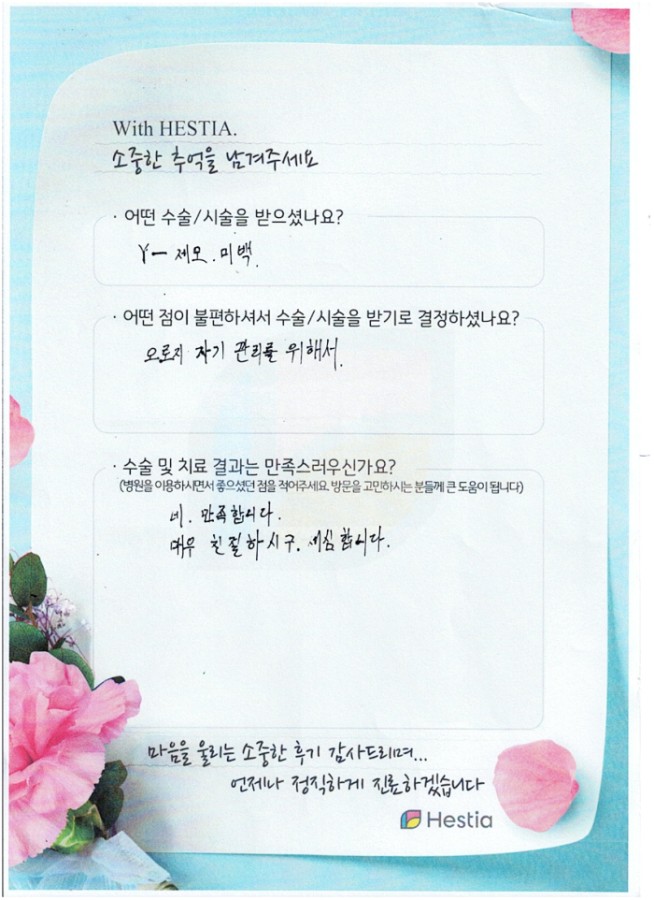 With HESTIA.
소중한 추억을 남겨주세요
· 어떤 수술/시술을 받으셨나요?
Y- 제모. 미백.
· 어떤 점이 불편하셔서 수술/시술을 받기로 결정하셨나요?
오로지 자기 관리를 위해서.
· 수술 및 치료 결과는 만족스러우신가요?
(병원을 이용하시면서 좋으셨던 점을 적어주세요. 방문을 고민하시는 분들께 큰 도움이 됩니다)
네. 만족합니다.
매우 친절하시구. 세심합니다.
마음을 울리는 소중한 후기 감사드리며...
언제나 정직하게 진료하겠습니다
Hestia